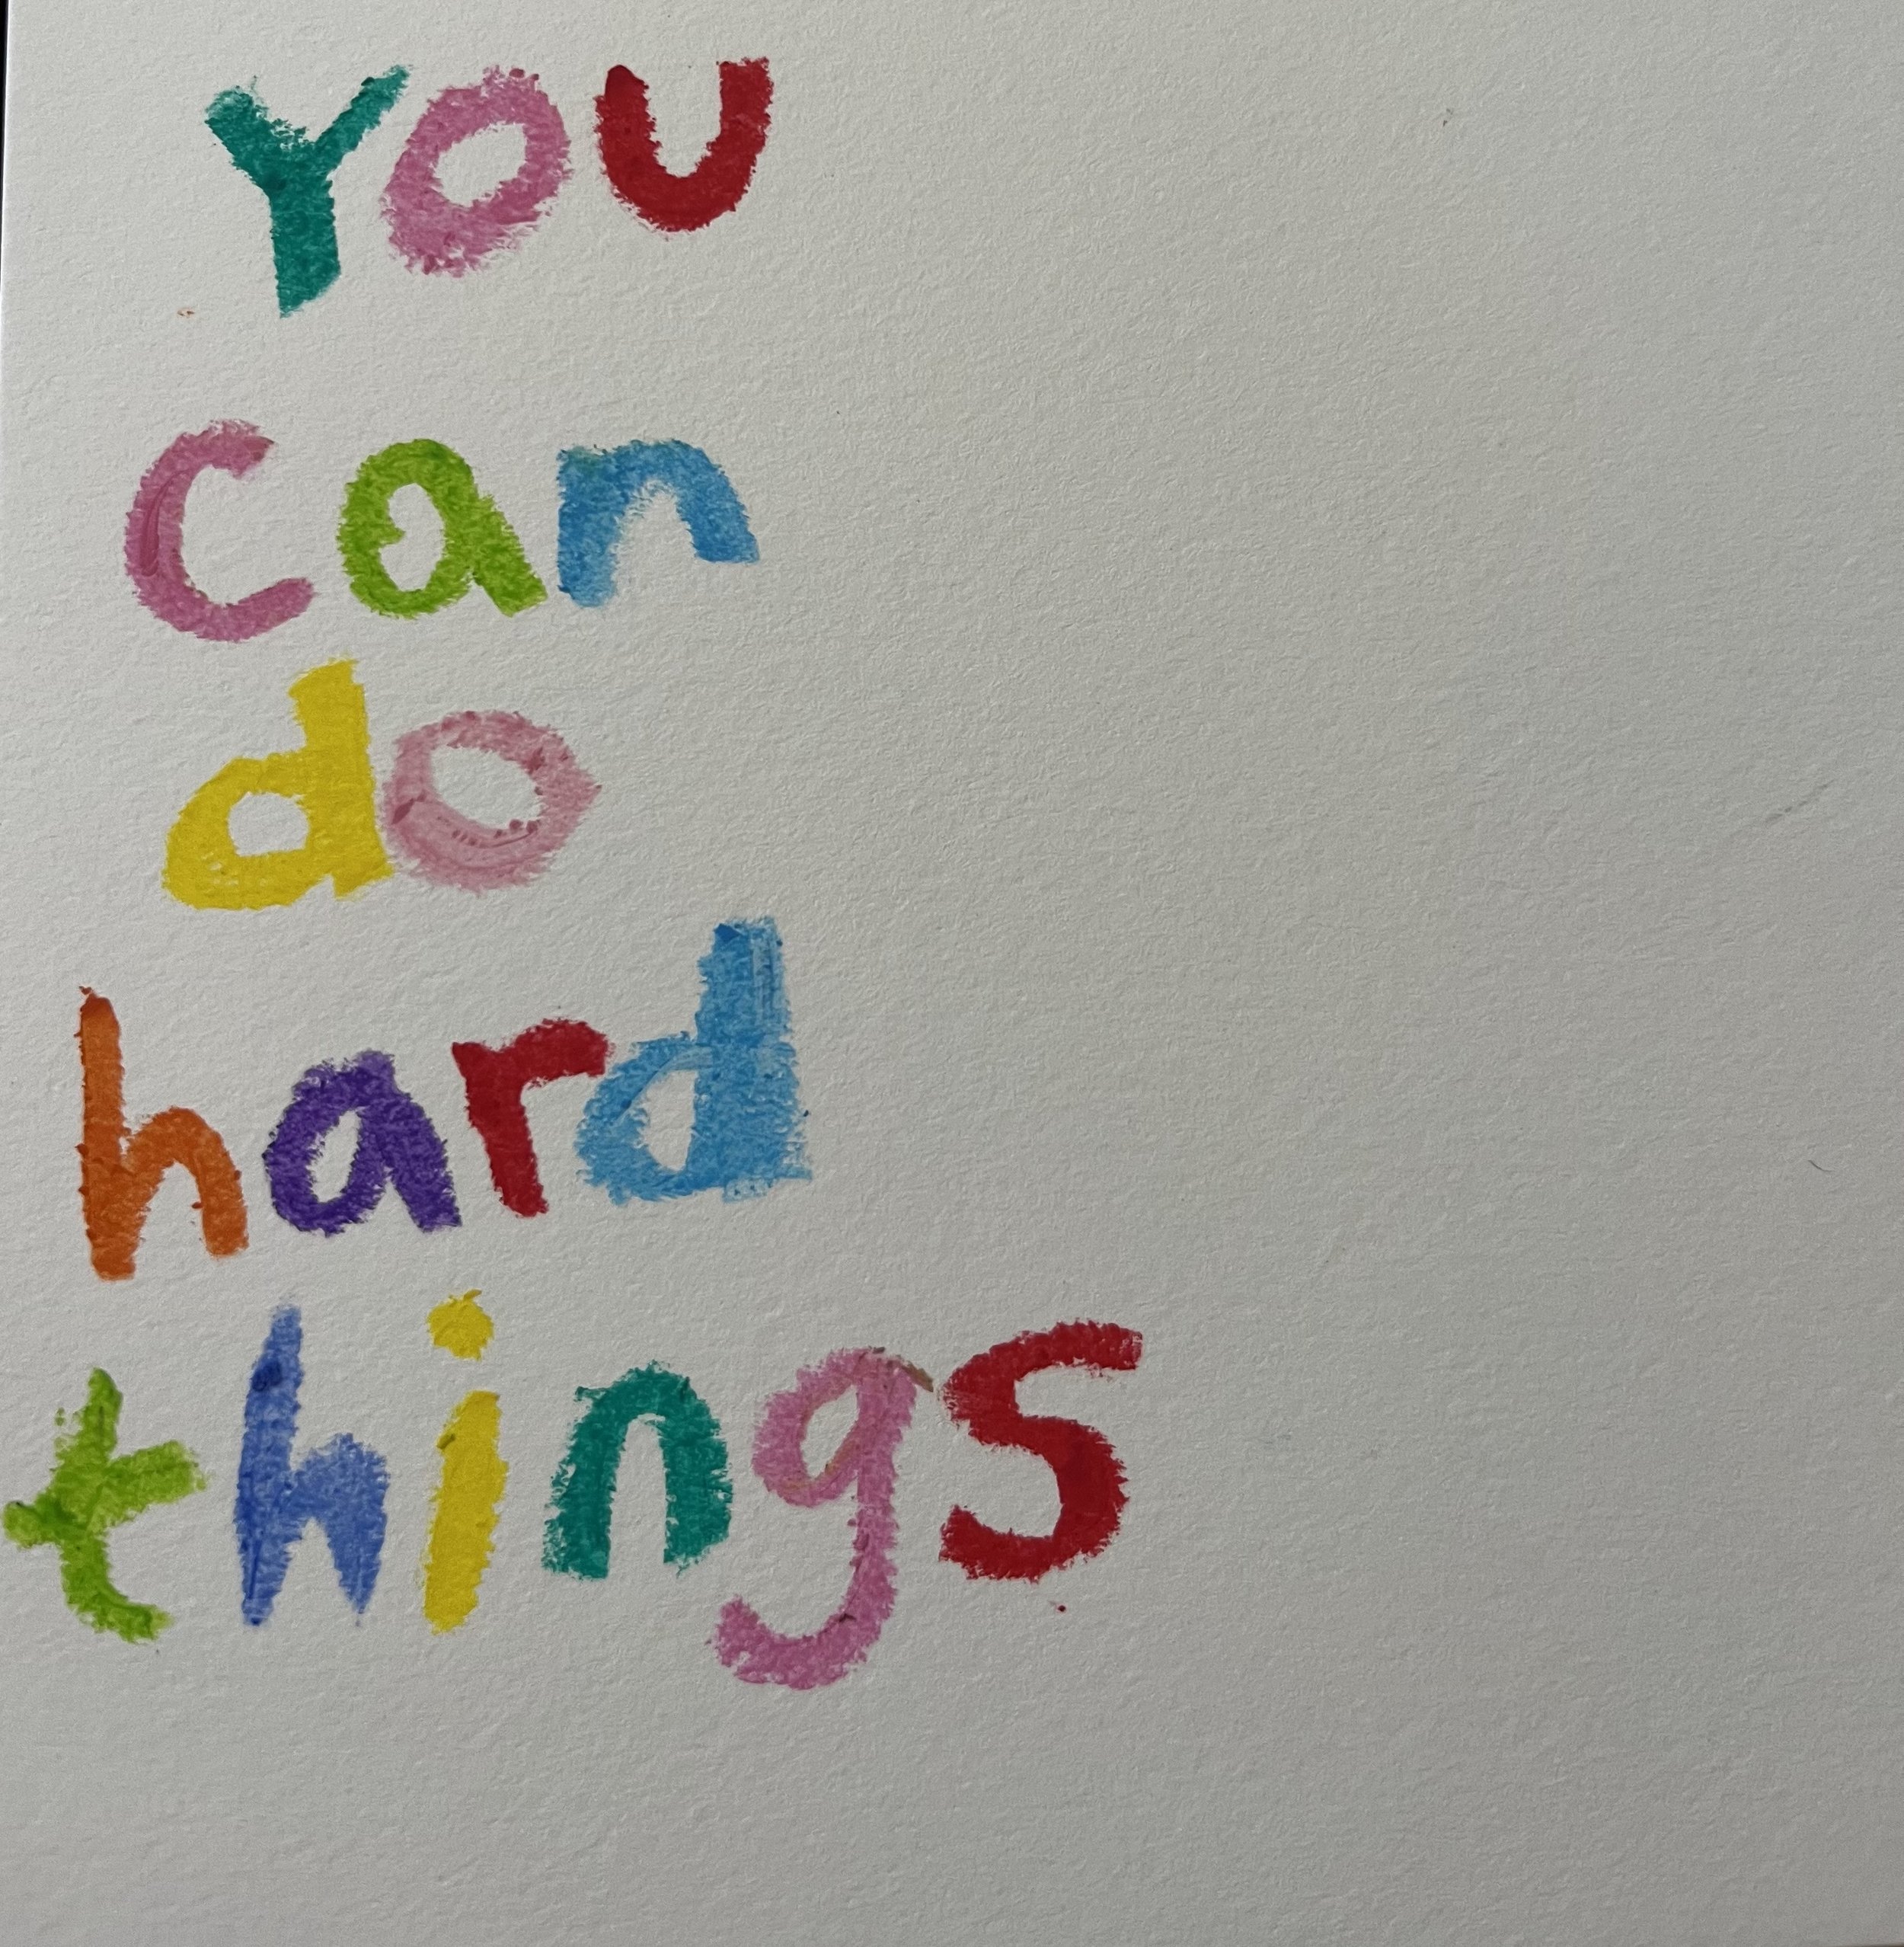 You
can
do
hard
things